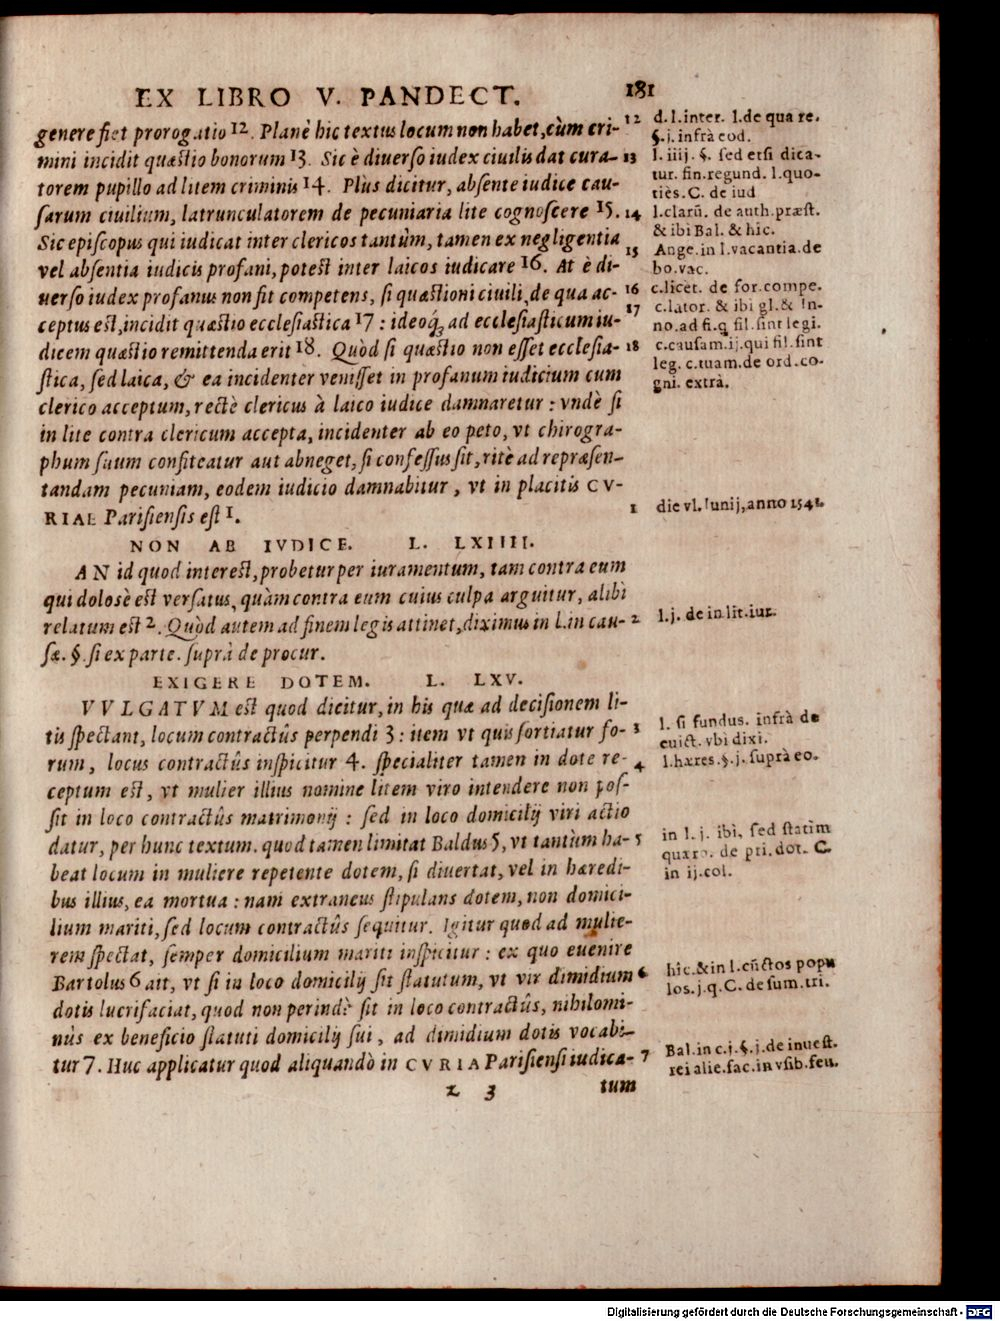 EX LIBRO V. PANDECT. 181
genere fiet prorogatio 12. Planè hic textus locum non habet, cùm cri-
mini incidit quæstio bonorum 13. Sic è diuerso iudex ciuilis dat cura-
torem pupillo ad litem criminis 14. Plùs dicitur, absente iudice cau-
sarum ciuilium, latrunculatorem de pecuniaria lite cognoscere 15.
Sic episcopus qui iudicat inter clericos tantùm, tamen ex negligentia
vel absentia iudicis profani, potest inter laicos iudicare 16. At è di-
uerso iudex profanus non fit competens, si quæstioni ciuili, de qua ac-
ceptus est, incidit quæstio ecclesiastica 17 : ideoq́; ad ecclesiasticum iu-
dicem quæstio remittenda erit 18. Quòd si quæstio non esset ecclesia-
stica, sed laica, & ea incidenter venisset in profanum iudicium cum
clerico acceptum, rectè clericus à laico iudice damnaretur : vndè si
in lite contra clericum accepta, incidenter ab eo peto, vt chirogra-
phum suum confiteatur aut abneget, si confessus sit, ritè ad repræsen-
tandam pecuniam, eodem iudicio damnabitur, vt in placitis CV-
RIAE Parisiensis est 1.
NON AB IVDICE. L. LXIIII.
AN id quod interest, probetur per iuramentum, tam contra eum
qui dolosè est versatus, quàm contra eum cuius culpa arguitur, alibi
relatum est 2. Quòd autem ad finem legis attinet, diximus in l. in cau-
sæ. §. si ex parte. suprà de procur.
EXIGERE DOTEM. L. LXV.
VVLGATVM est quod dicitur, in his quæ ad decisionem li-
tis spectant, locum contractûs perpendi 3 : item vt quis sortiatur fo-
rum, locus contractûs inspicitur 4. specialiter tamen in dote re-
ceptum est, vt mulier illius nomine litem viro intendere non pos-
sit in loco contractûs matrimonij : sed in loco domicilij viri actio
datur, per hunc textum. quod tamen limitat Baldus 5, vt tantùm ha-
beat locum in muliere repetente dotem, si diuertat, vel in hæredi-
bus illius, ea mortua : nam extraneus stipulans dotem, non domici-
lium mariti, sed locum contractûs sequitur. Igitur quod ad mulie-
rem spectat, semper domicilium mariti inspicitur : ex quo euenire
Bartolus 6 ait, vt si in loco domicilij sit statutum, vt vir dimidium
dotis lucrifaciat, quod non perindè sit in loco contractûs, nihilomi-
nùs ex beneficio statuti domicilij sui, ad dimidium dotis vocabi-
tur 7. Huc applicatur quod aliquandò in CVRIA Parisiensi iudica-
z 3 tum
12 d. l. inter. l. de qua re.
§. j. infrà eod.
13 l. iiij. §. sed etsi dica-
tur. fin. regund. l. quo-
tiès. C. de iud
14 l. clarũ. de auth. præst.
& ibi Bal. & hic.
15 Ange. in l. vacantia. de
bo. vac.
16 c. licèt. de for. compe.
17 c. lator. & ibi gl. & In-
no. ad fi. q fil. sint legi.
18 c. causam. ij. qui fil. sint
leg. c. tuam. de ord. co-
gni. extrà.
1 die vl. Iunij, anno 1541.
2 l. j. de in lit. iur.
3 l. si fundus. infrà de
euict. vbi dixi.
4 l. hæres. §. j. suprà eo.
5 in l. j. ibi, sed statim
quæro. de pri. dot. C.
in ij. col.
6 hîc. & in l. cũctos popu
los. j. q. C. de sum. tri.
7 Bal. in c. j. §. j. de inuest.
rei alie. fac. in vsib. feu.
Digitalisierung gefördert durch die Deutsche Forschungsgemeinschaft - DFG